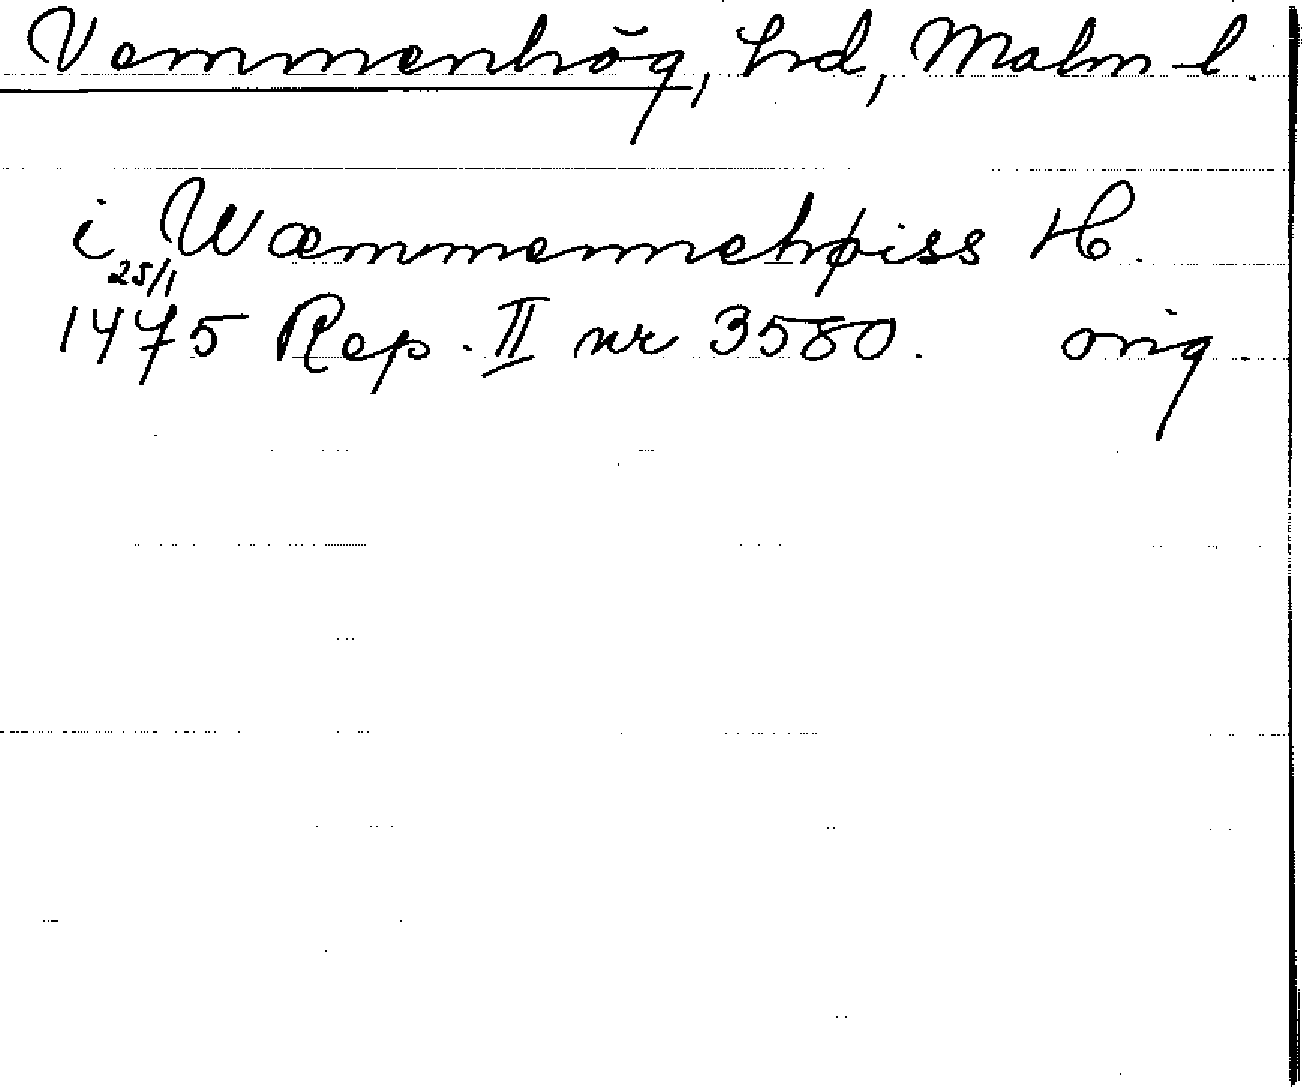 Vemmenhög, hd, Malm l.
i Wæmmennehøiss H.
25/1
1475 Rep. II nr 3580. orig